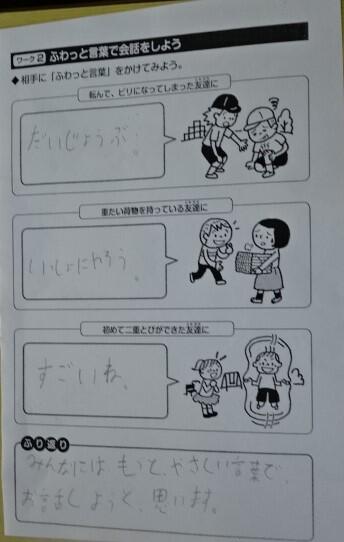 ワーク2 ふわっと言葉で会話をしよう
◆相手に「ふわっと言葉」をかけてみよう。
転んで、ビリになってしまった友達に
だいじょうぶ。
重たい荷物を持っている友達に
いっしょにやろう。
初めて二重とびができた友達に
すごいね。
ふり返り
みんなには もっと、やさしい言葉で、
お話しようと、思います。